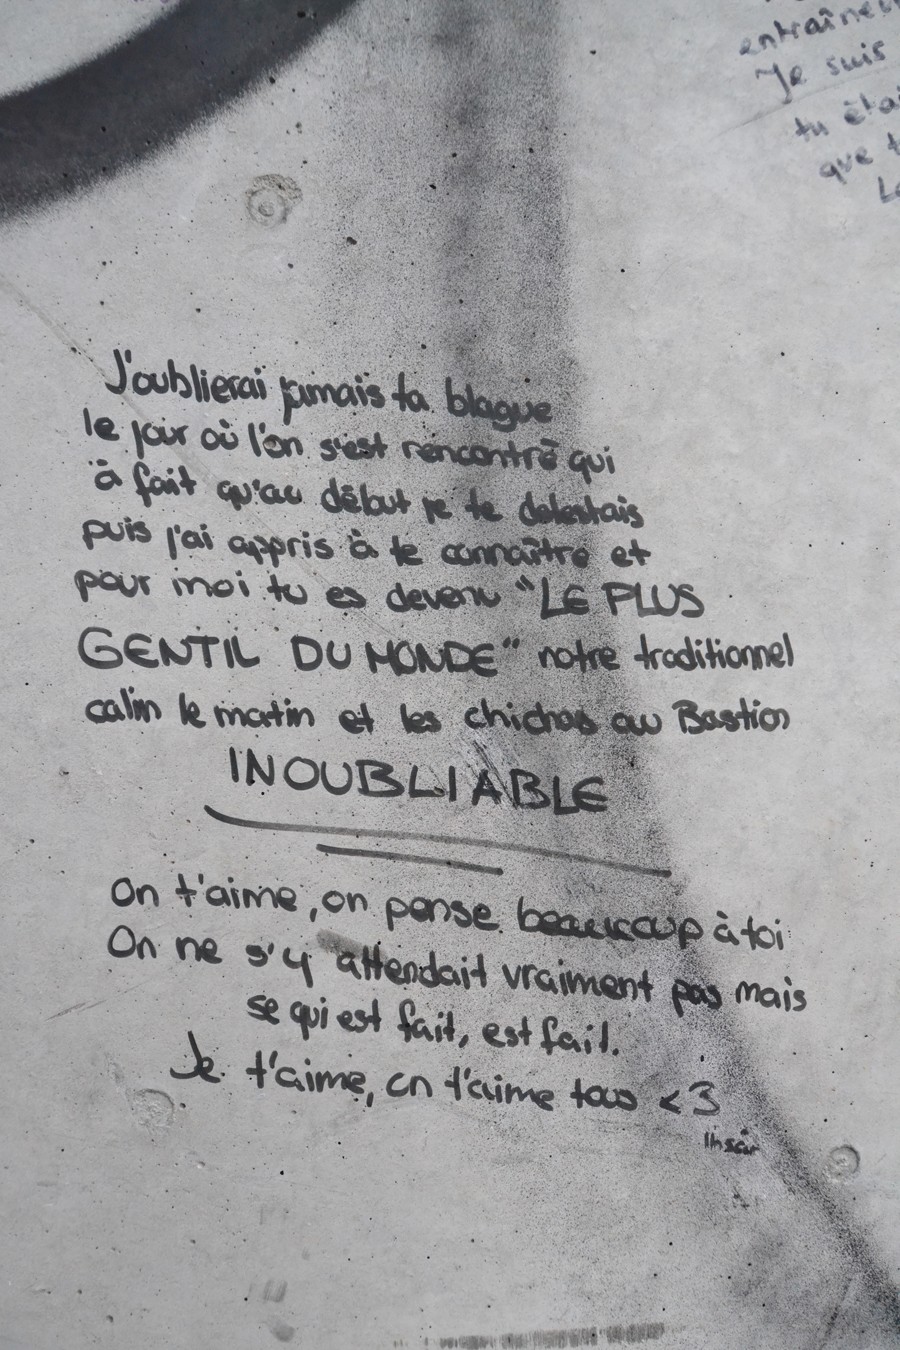 entraîne
Je suis
tu étai
que t
J'oublierai jamais ta blague
le jour où l'on s'est rencontré qui
à fait qu'au début je te detestais
puis j'ai appris à te connaître et
pour moi tu es devenu "LE PLUS
GENTIL DU MONDE" notre traditionnel
calin le matin et les chichas au Bastion
INOUBLIABLE
On t'aime, on pense beaucoup à toi
On ne s'y attendait vraiment pas mais
se qui est fait, est fait.
Je t'aime, on t'aime tous <3